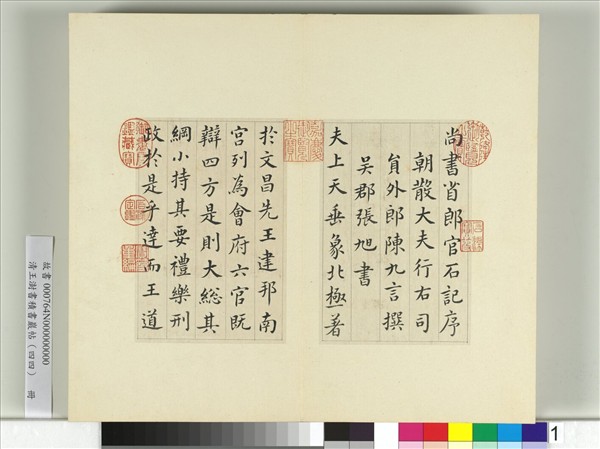 尚書省郎官石記序
朝散大夫行右司
員外郎陳九言撰
吳郡張旭書
夫上天垂象北極著
於文昌先王建邦南
宮列為會府六官既
辯四方是則大総其
綱小持其要禮樂刑
政於是乎達而王道
故書 000764N000000000
清王澍書積書巖帖(四四) 冊
1